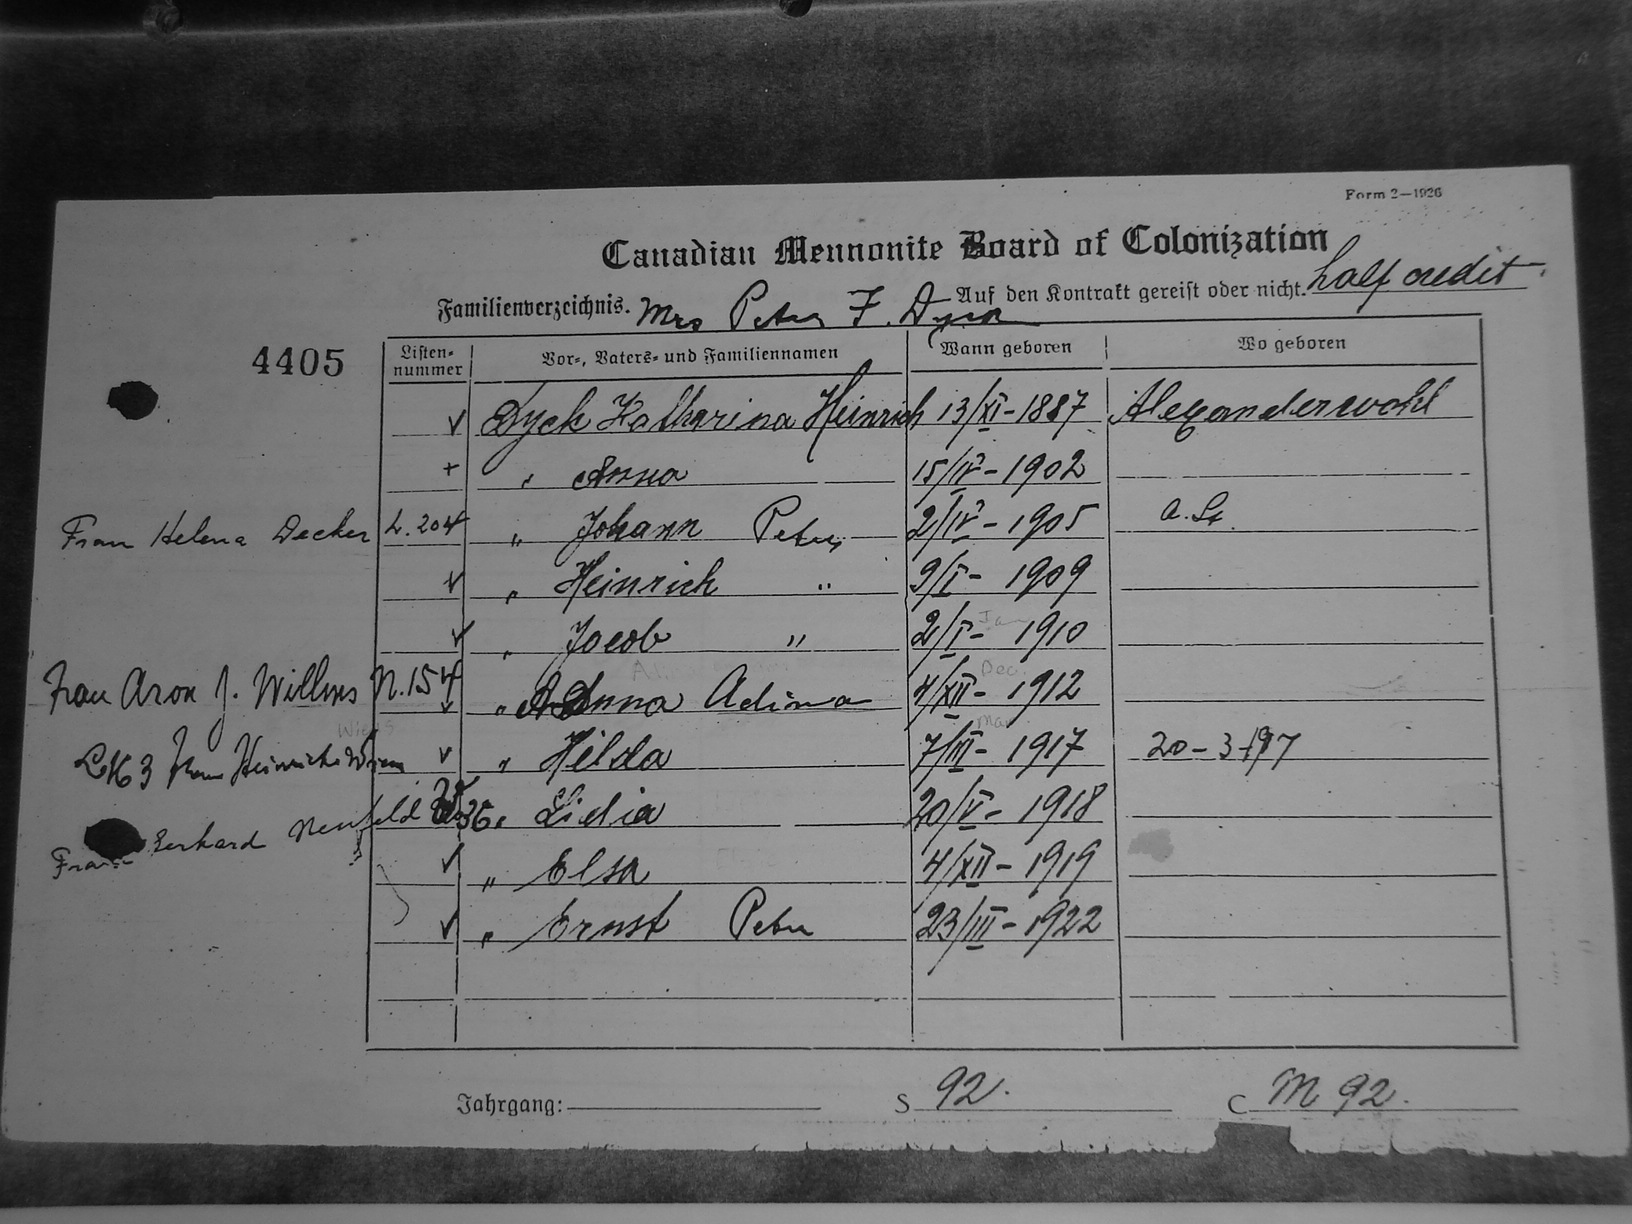 Form 2—1926
Canadian Mennonite Board of Colonization
Familienverzeichnis. Mrs Peter F. Dyck Auf den Kontrakt gereist oder nicht. half credit
4405
Listen-nummer Vor-, Vaters- und Familiennamen Wann geboren Wo geboren
✓ Dyck Katharina Heinrich 13/XI-1887 Alexanderwohl
+ " Anna 15/IV-1902
Frau Helena Decker L.204 " Johann Peter 2/IV-1905 a. St.
✓ " Heinrich " 9/I-1909
✓ " Jacob " 2/I-1910 Jan
Frau Aron J. Willms N.154 ✓ " Anna Adina 4/XII-1912 Dec
Wiens
Frau Heinrich ✓ " Hilda 7/III-1917 Mar 20-3-
Frau Gerhard Neufeld " Lidia 20/V-1918
✓ " Elsa 4/XII-1919
✓ " Ernst Peter 23/III-1922
Jahrgang: S 92. C M 92.